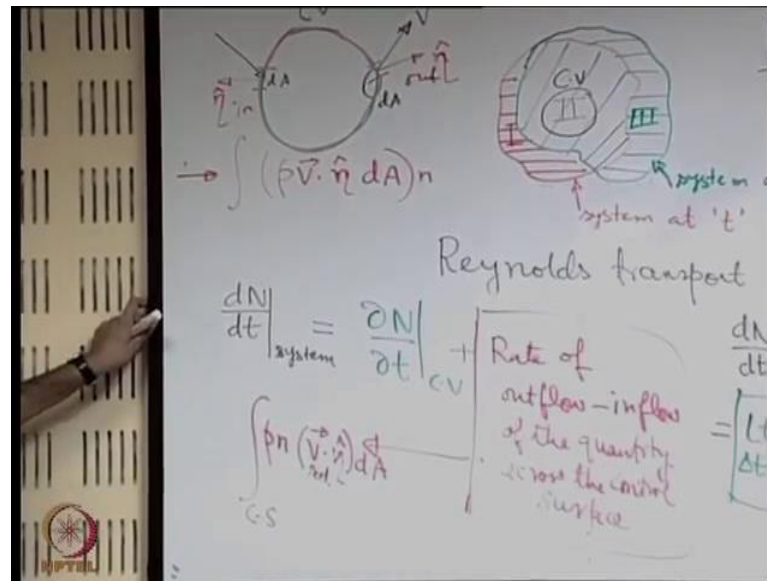 CV V
dA η̂ out
η̂ in dA
→ ∫ (ρV⃗·η̂ dA)n
C.V
II
I III
system
system at 't'
Reynolds transport
dN/dt|system = ∂N/∂t|C.V + Rate of outflow-inflow of the quantity across the control surface
∫C.S ρn (V⃗·η̂) dA
dN
dt
= Lt
Δt
NPTEL